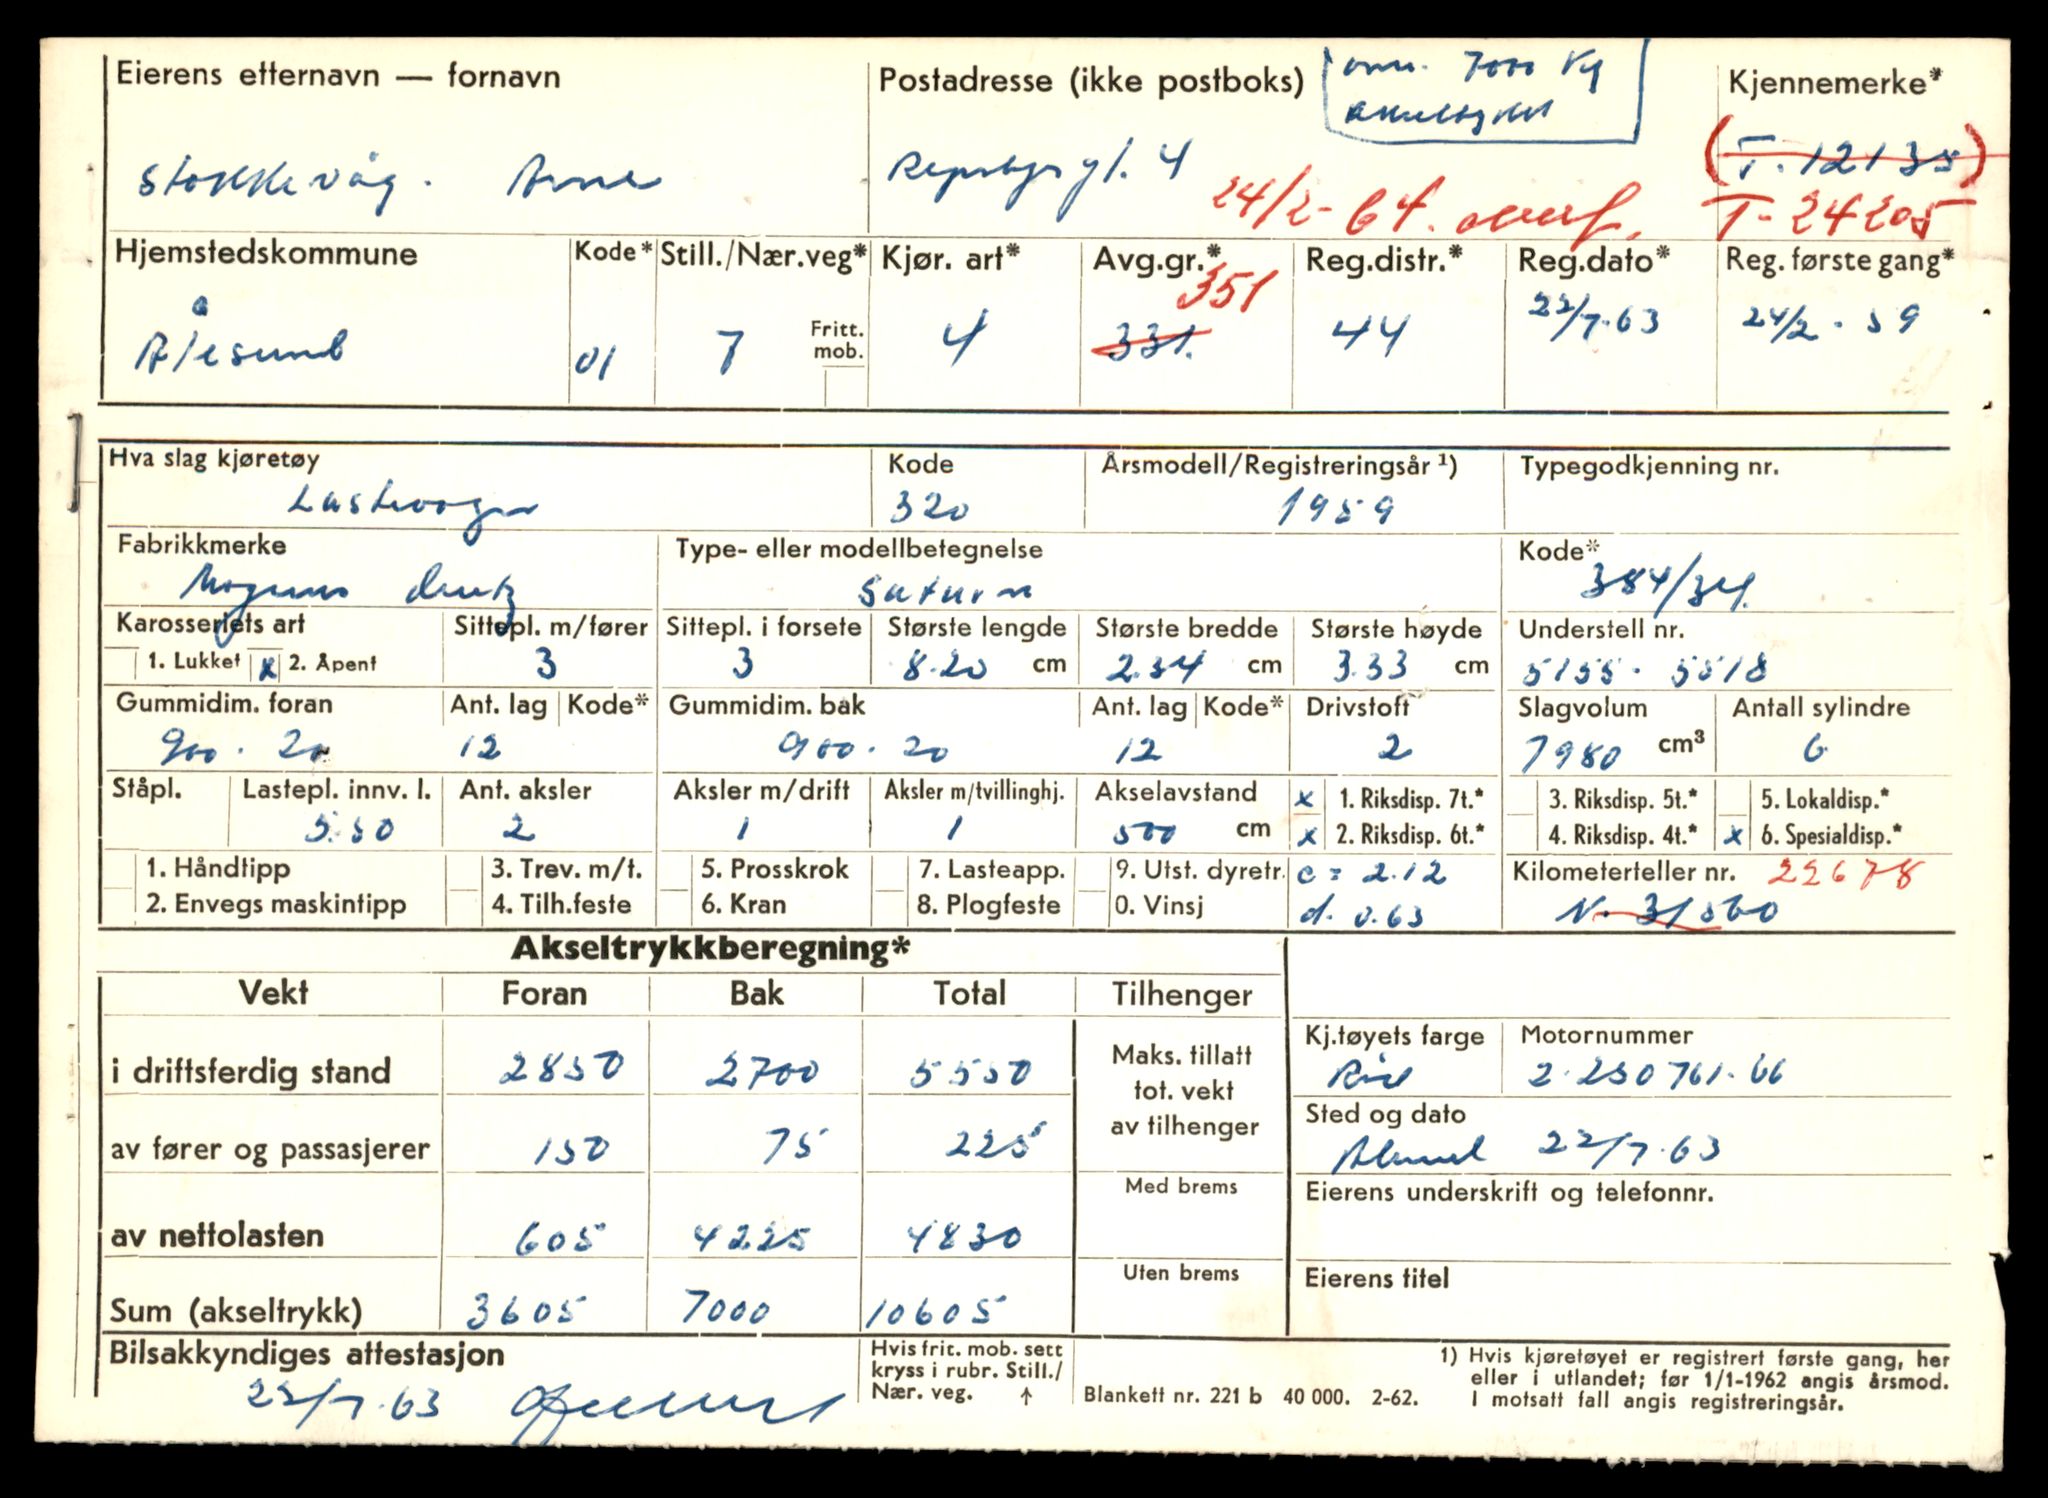 Eierens etternavn — fornavn
Postadresse (ikke postboks)
7000 kg
Kjennemerke*
Stokkevåg. Arne
gt. 4
(T-12135)
24/2-64. overf.
T-24205
Hjemstedskommune Kode* Still./Nær.veg* Kjør. art* Avg.gr.* Reg.distr.* Reg.dato* Reg. første gang*
351
Ålesund 01 7 Fritt. mob. 4 331. 44 22/7.63 24/2 - 59
Hva slag kjøretøy Kode Årsmodell/Registreringsår ¹) Typegodkjenning nr.
Lastevogn 320 1959
Fabrikkmerke Type- eller modellbetegnelse Kode*
Magirus Deutz Saturn 384/34.
Karosseriets art Sittepl. m/fører Sittepl. i forsete Største lengde Største bredde Største høyde Understell nr.
1. Lukket x 2. Åpent 3 3 8.20 cm 2.34 cm 3.33 cm 5155-5518
Gummidim. foran Ant. lag Kode* Gummidim. bak Ant. lag Kode* Drivstoft Slagvolum Antall sylindre
900.20 12 900.20 12 2 7980 cm³ 6
Ståpl. Lastepl. innv. l. Ant. aksler Aksler m/drift Aksler m/tvillinghj. Akselavstand x 1. Riksdisp. 7t.* 3. Riksdisp. 5t.* 5. Lokaldisp.*
5.50 2 1 1 500 cm x 2. Riksdisp. 6t.* 4. Riksdisp. 4t.* x 6. Spesialdisp.*
1. Håndtipp 3. Trev. m/t. 5. Prosskrok 7. Lasteapp. 9. Utst. dyretr. c = 2.12 Kilometerteller nr. 22678
2. Envegs maskintipp 4. Tilh.feste 6. Kran 8. Plogfeste 0. Vinsj d. 0.63 N. 31560
Akseltrykkberegning*
Vekt Foran Bak Total Tilhenger
i driftsferdig stand 2850 2700 5550
Maks. tillatt
tot. vekt
av tilhenger
Kj.tøyets farge Motornummer
2.250761.66
av fører og passasjerer 150 75 225
Sted og dato
Ålesund 22/7.63
Med brems
Eierens underskrift og telefonnr.
av nettolasten 605 4225 4830
Uten brems
Eierens titel
Sum (akseltrykk) 3605 7000 10605
Bilsakkyndiges attestasjon
22/7.63
Hvis frit. mob. sett
kryss i rubr. Still./
Nær. veg. ↑
Blankett nr. 221 b 40 000. 2-62.
1) Hvis kjøretøyet er registrert første gang, her
eller i utlandet; før 1/1-1962 angis årsmod.
I motsatt fall angis registreringsår.